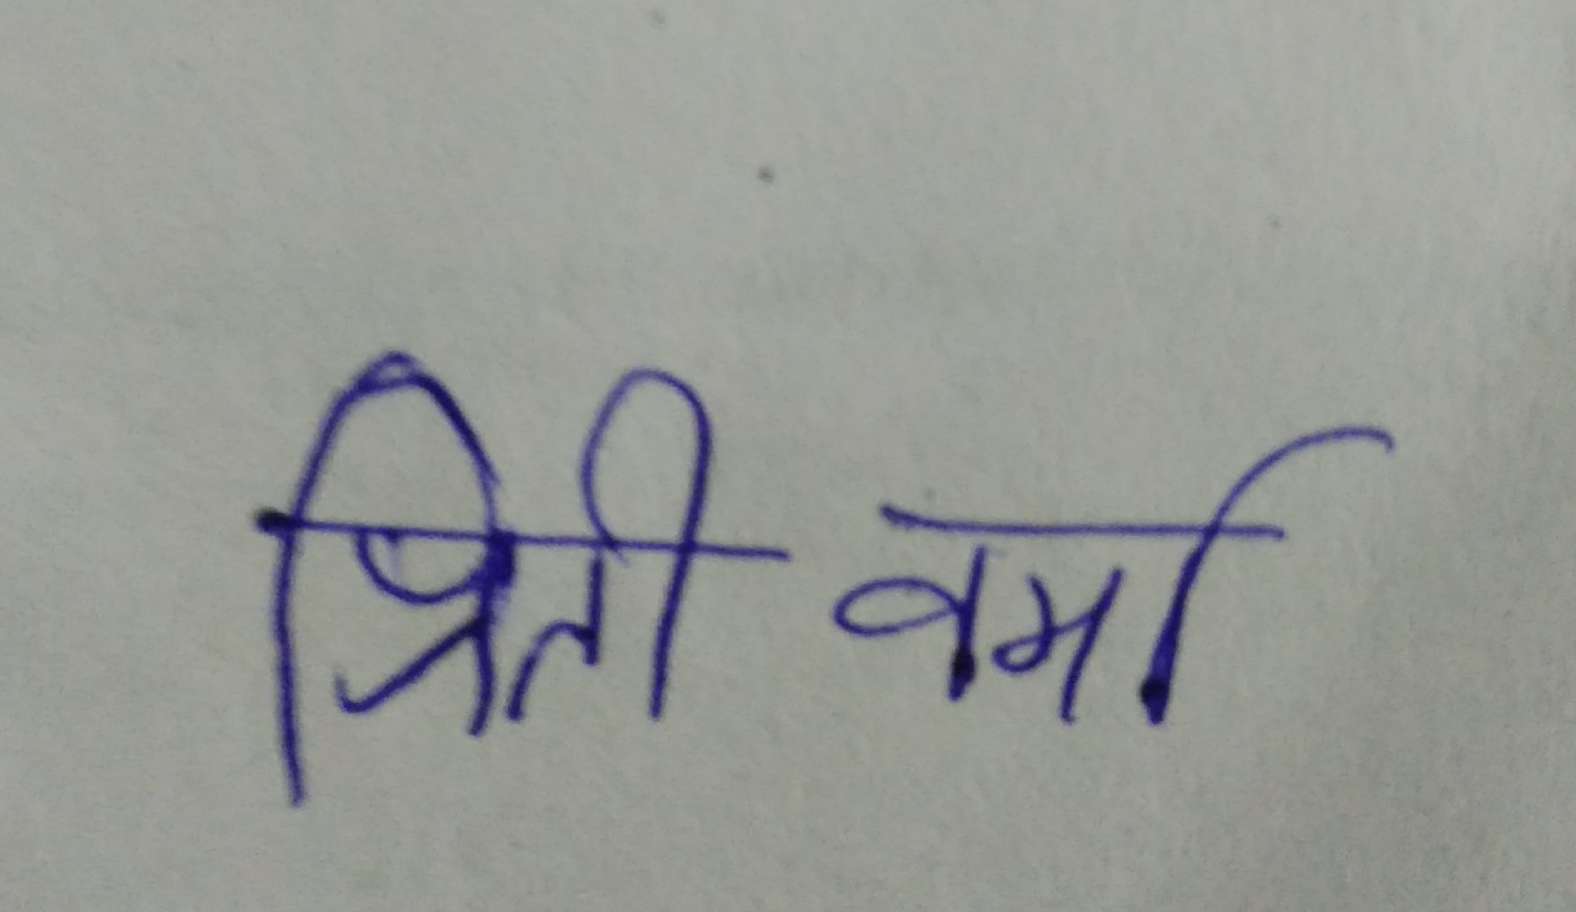 प्रिती वर्मा